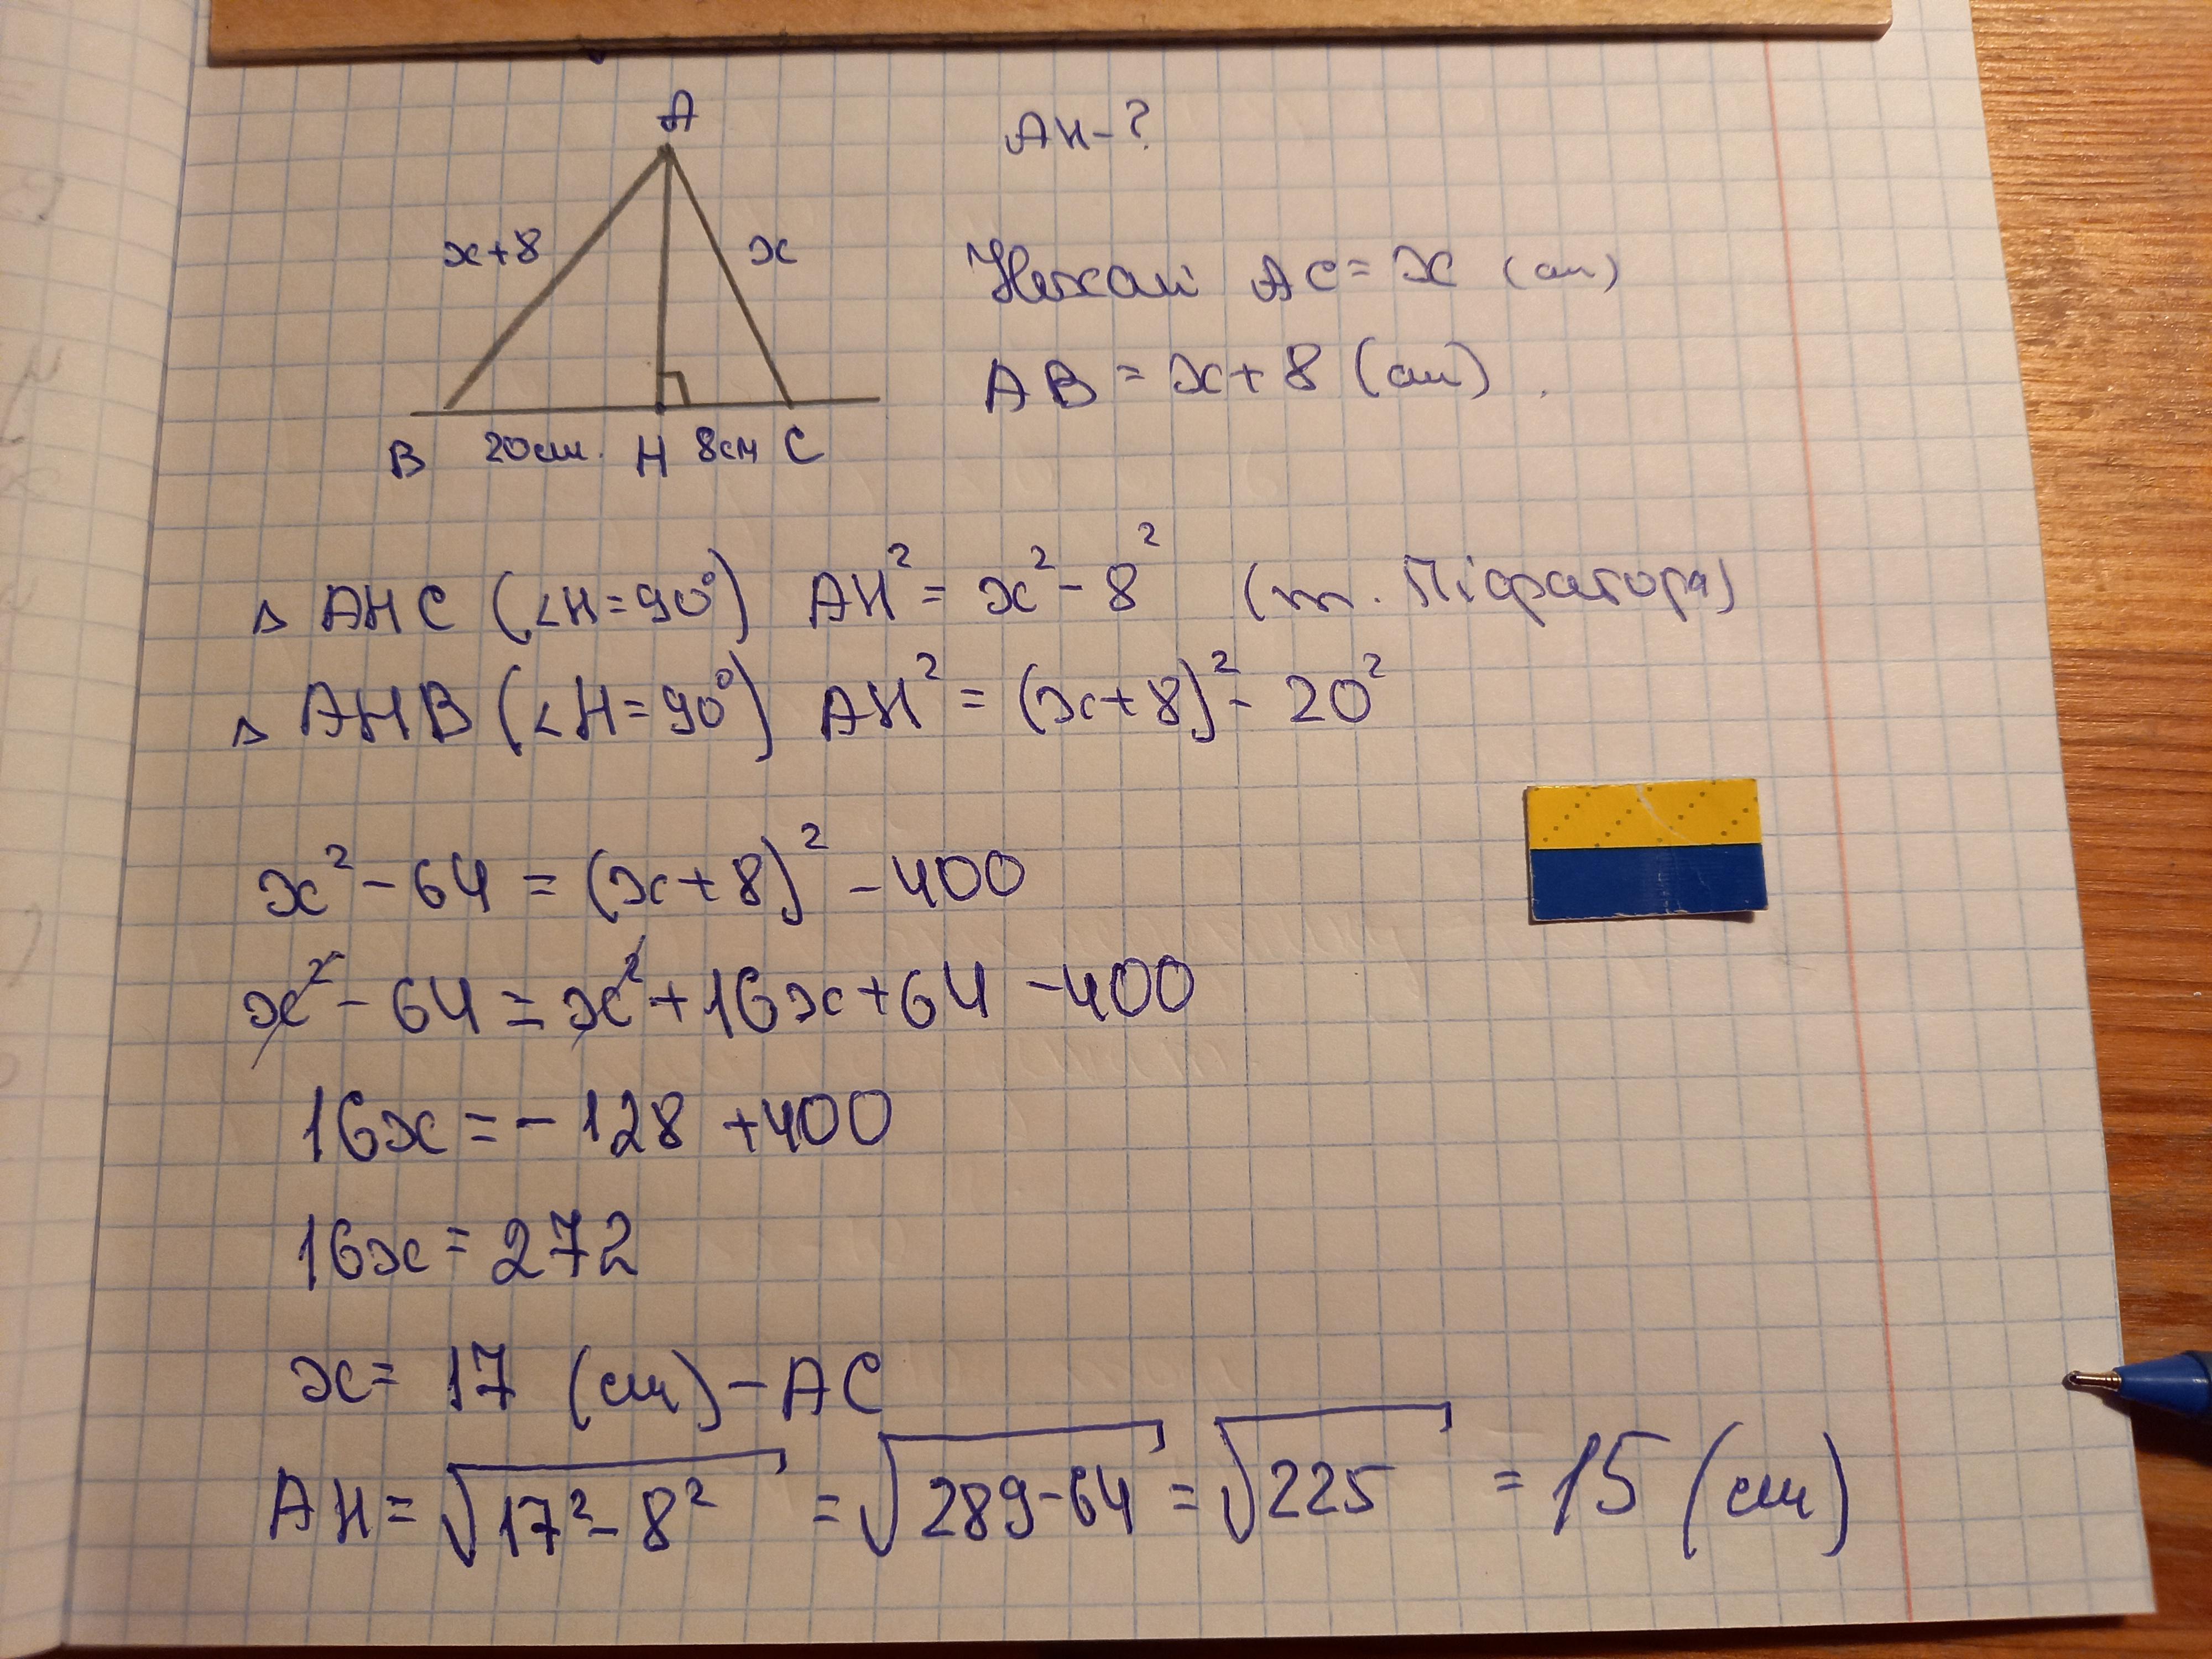 A
АН-?
x+8
x
Нехай AC = x (см)
AB = x+8 (см).
B 20см. H 8см C
△ AHC (∠H=90°) AH² = x² - 8² (т. Піфагора)
△ AHB (∠H=90°) AH² = (x+8)² - 20²
x² - 64 = (x+8)² - 400
x² - 64 = x² + 16x + 64 - 400
16x = - 128 + 400
16x = 272
x = 17 (см) - AC
AH = √17² - 8² = √289-64 = √225 = 15 (см)